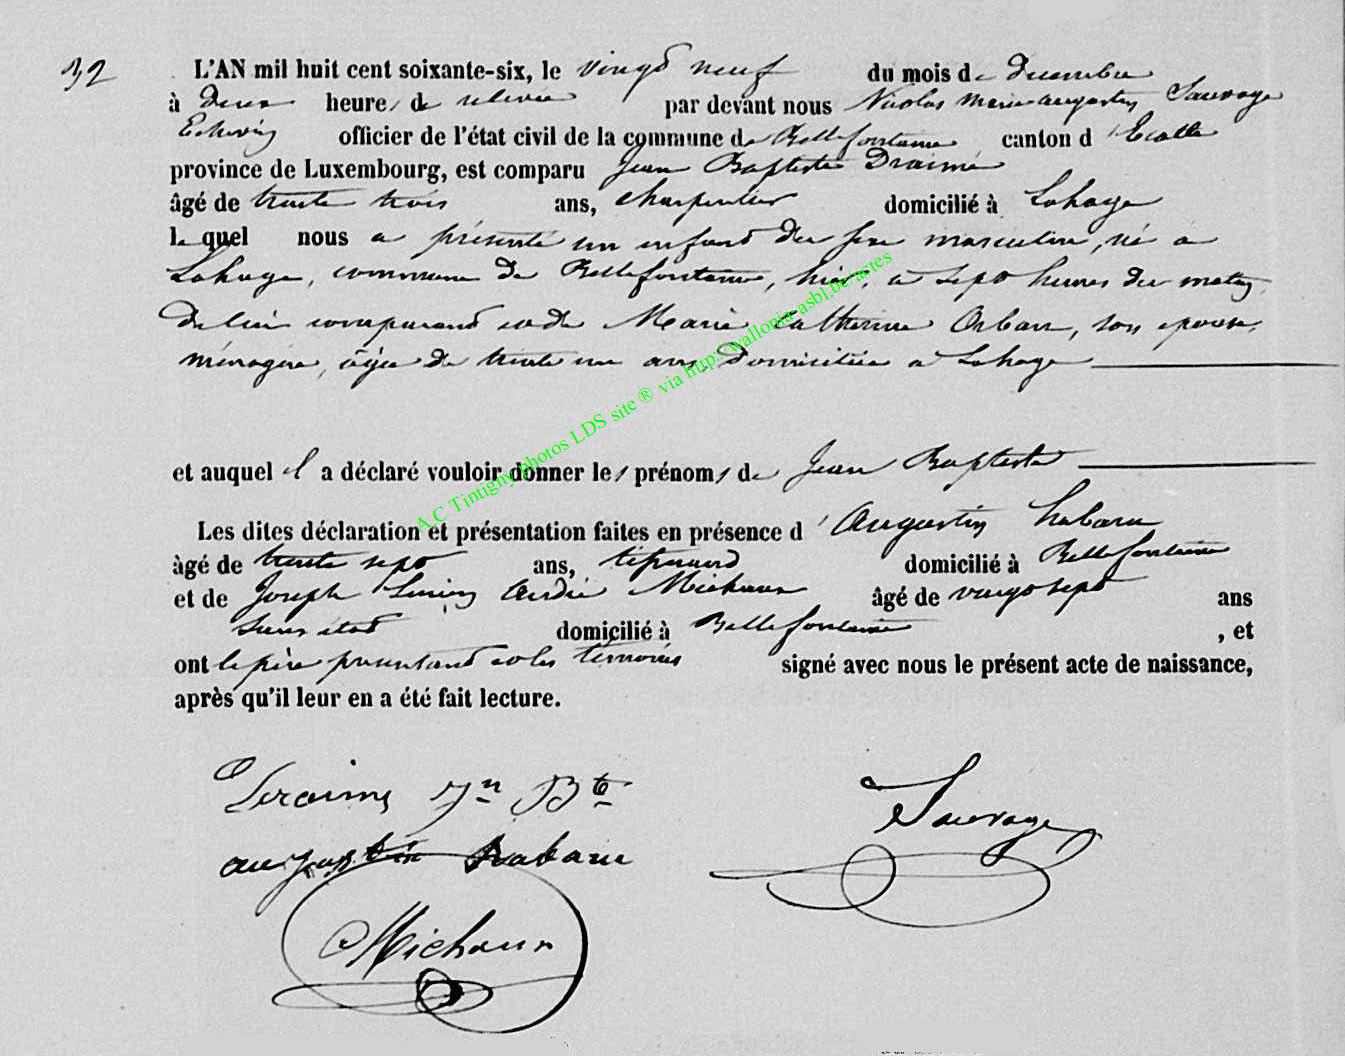 32
L'AN mil huit cent soixante-six, le vingt neuf du mois de décembre
à deux heures de relevée par devant nous Nicolas Marie Augustin Sauvage
Echevin officier de l'état civil de la commune de Bellefontaine canton d'Etalle
province de Luxembourg, est comparu Jean Baptiste Draime
âgé de trente trois ans, charpentier domicilié à Lahage
lequel nous a présenté un enfant du sexe masculin, né à
Lahage, commune de Bellefontaine, hier, à sept heures du matin
de lui comparant et de Marie Catherine Orban, son épouse,
ménagère, âgée de trente un ans, domiciliée à Lahage
et auquel il a déclaré vouloir donner les prénoms de Jean Baptiste
Les dites déclaration et présentation faites en présence d'Augustin
âgé de trente sept ans, domicilié à Bellefontaine
et de Joseph Michaux âgé de vingt sept ans
domicilié à Bellefontaine, et
ont le père présentant et les témoins signé avec nous le présent acte de naissance,
après qu'il leur en a été fait lecture.
Deraime Jn Bte
Sauvage
augustin
Michaux
A.C Tintigny photos LDS site ® via http://wallonia-asbl.be/actes